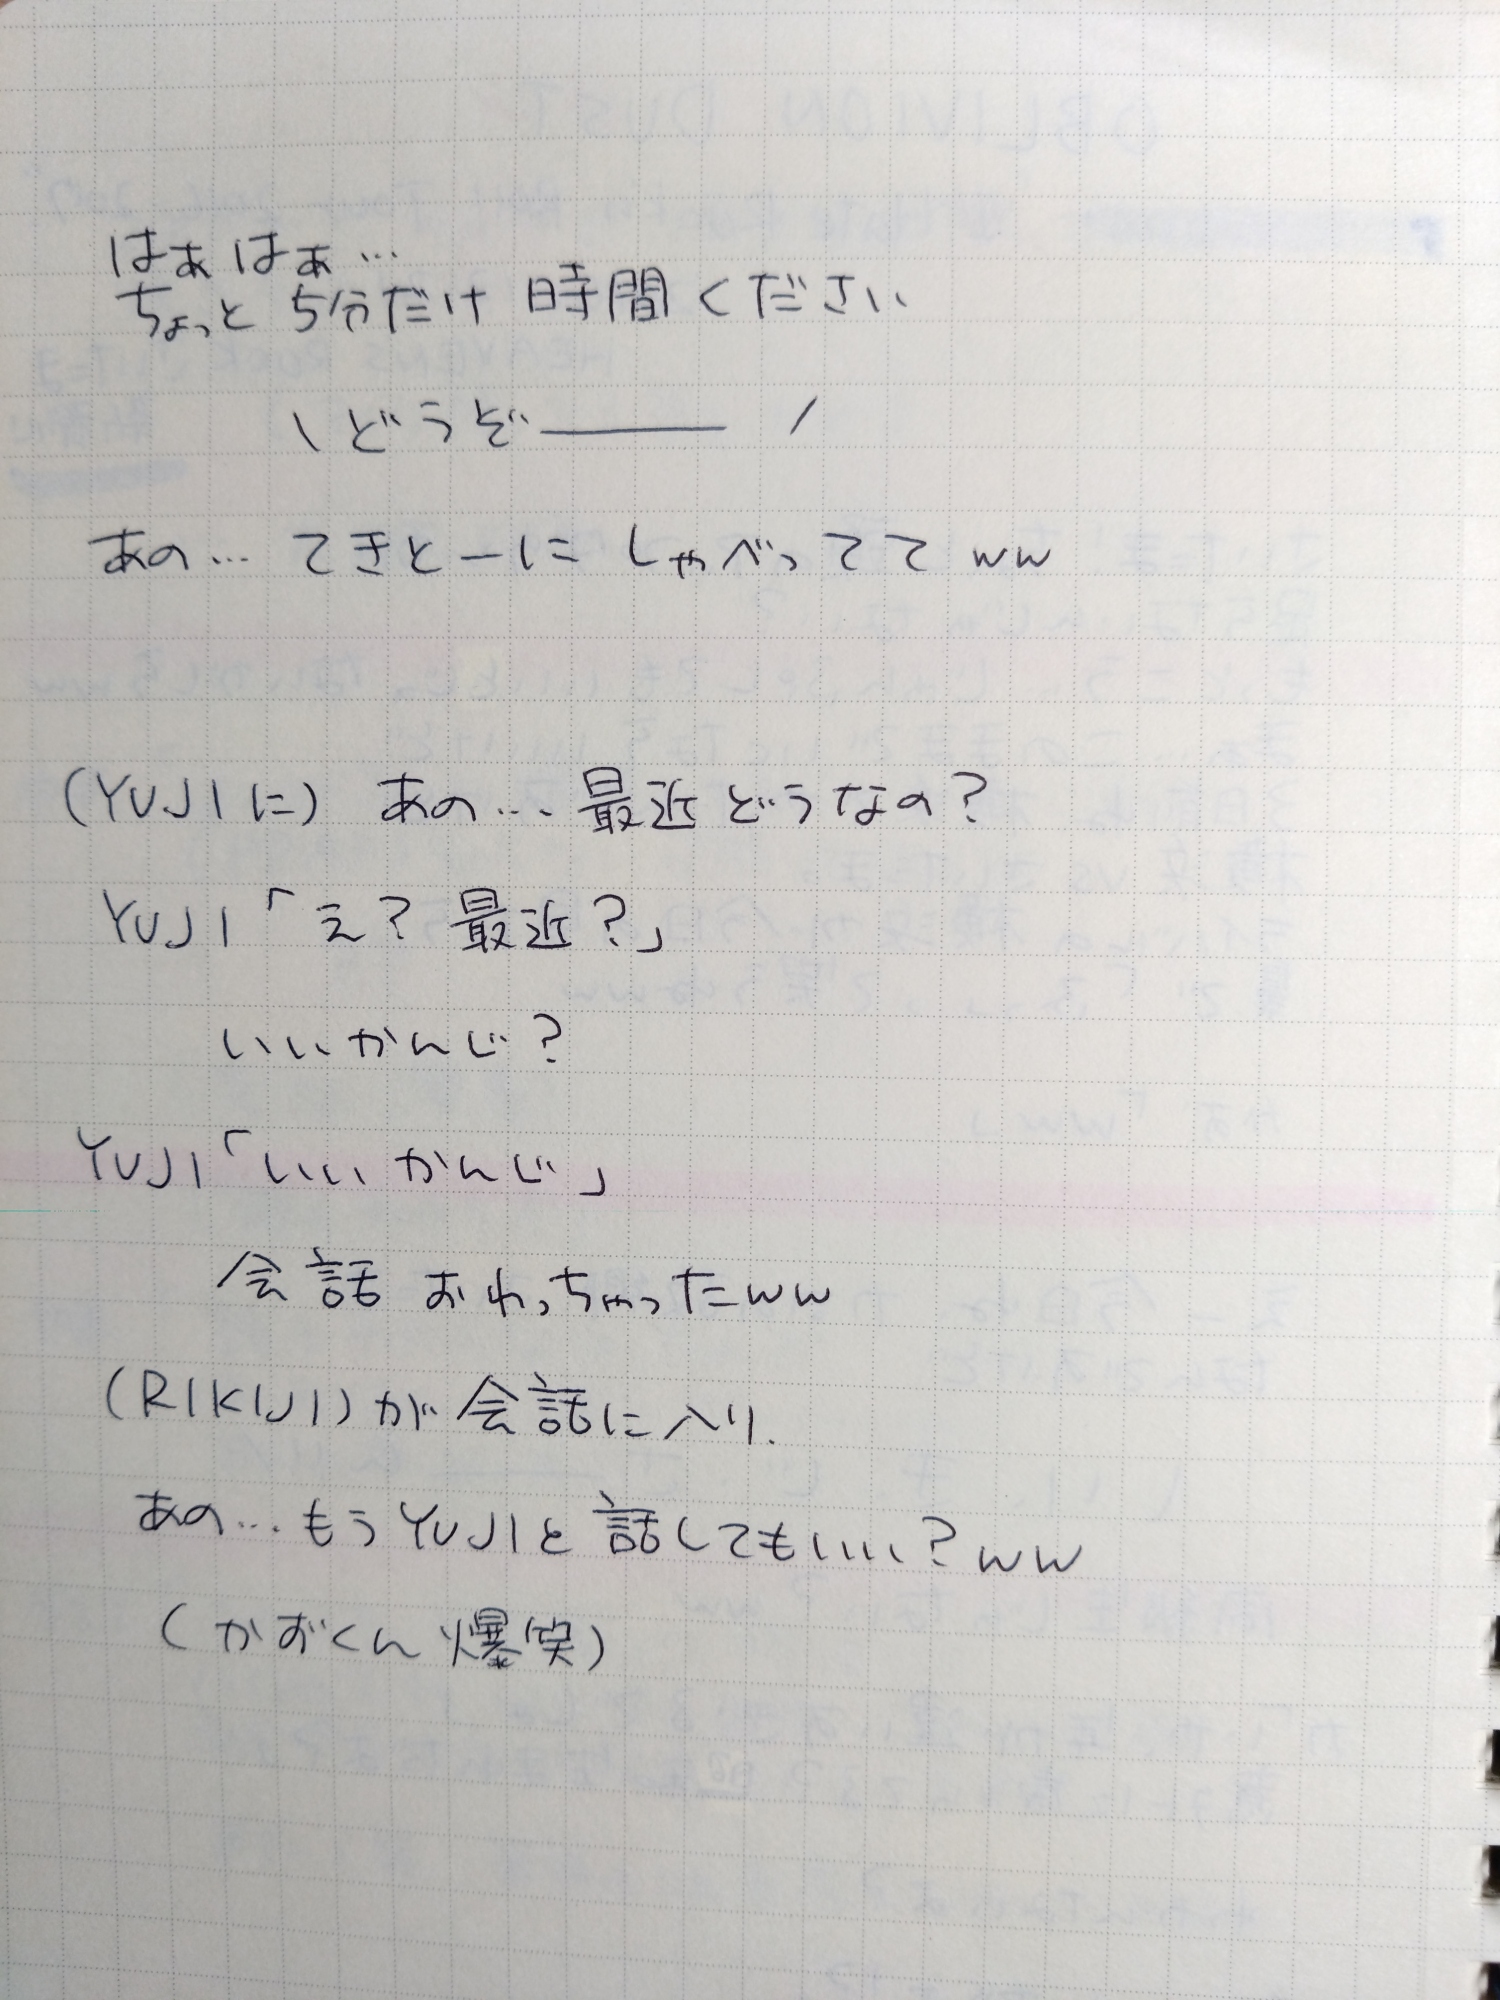 はぁはぁ…
ちょっと 5分だけ 時間ください
\ どうぞ――― /
あの… てきとーに しゃべってて ww
(YUJIに) あの… 最近どうなの?
YUJI「え? 最近?」
いいかんじ?
YUJI「いいかんじ」
会話 おわっちゃったww
(RIKIJI)が 会話に入り.
あの… もうYUJIと 話してもいい? ww
(かずくん 爆笑)